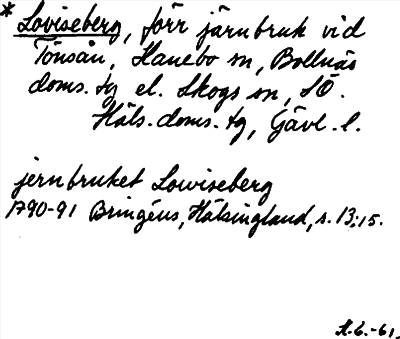 * Loviseberg, förr järnbruk vid
Tönsån, Hanebo sn, Bollnäs
doms. tg el. Skogs sn, SÖ.
Häls. doms. tg, Gävl. l.
jernbruket Lowiseberg
1790-91 Bringéus, Hälsingland, s. 13, 15.
-61.